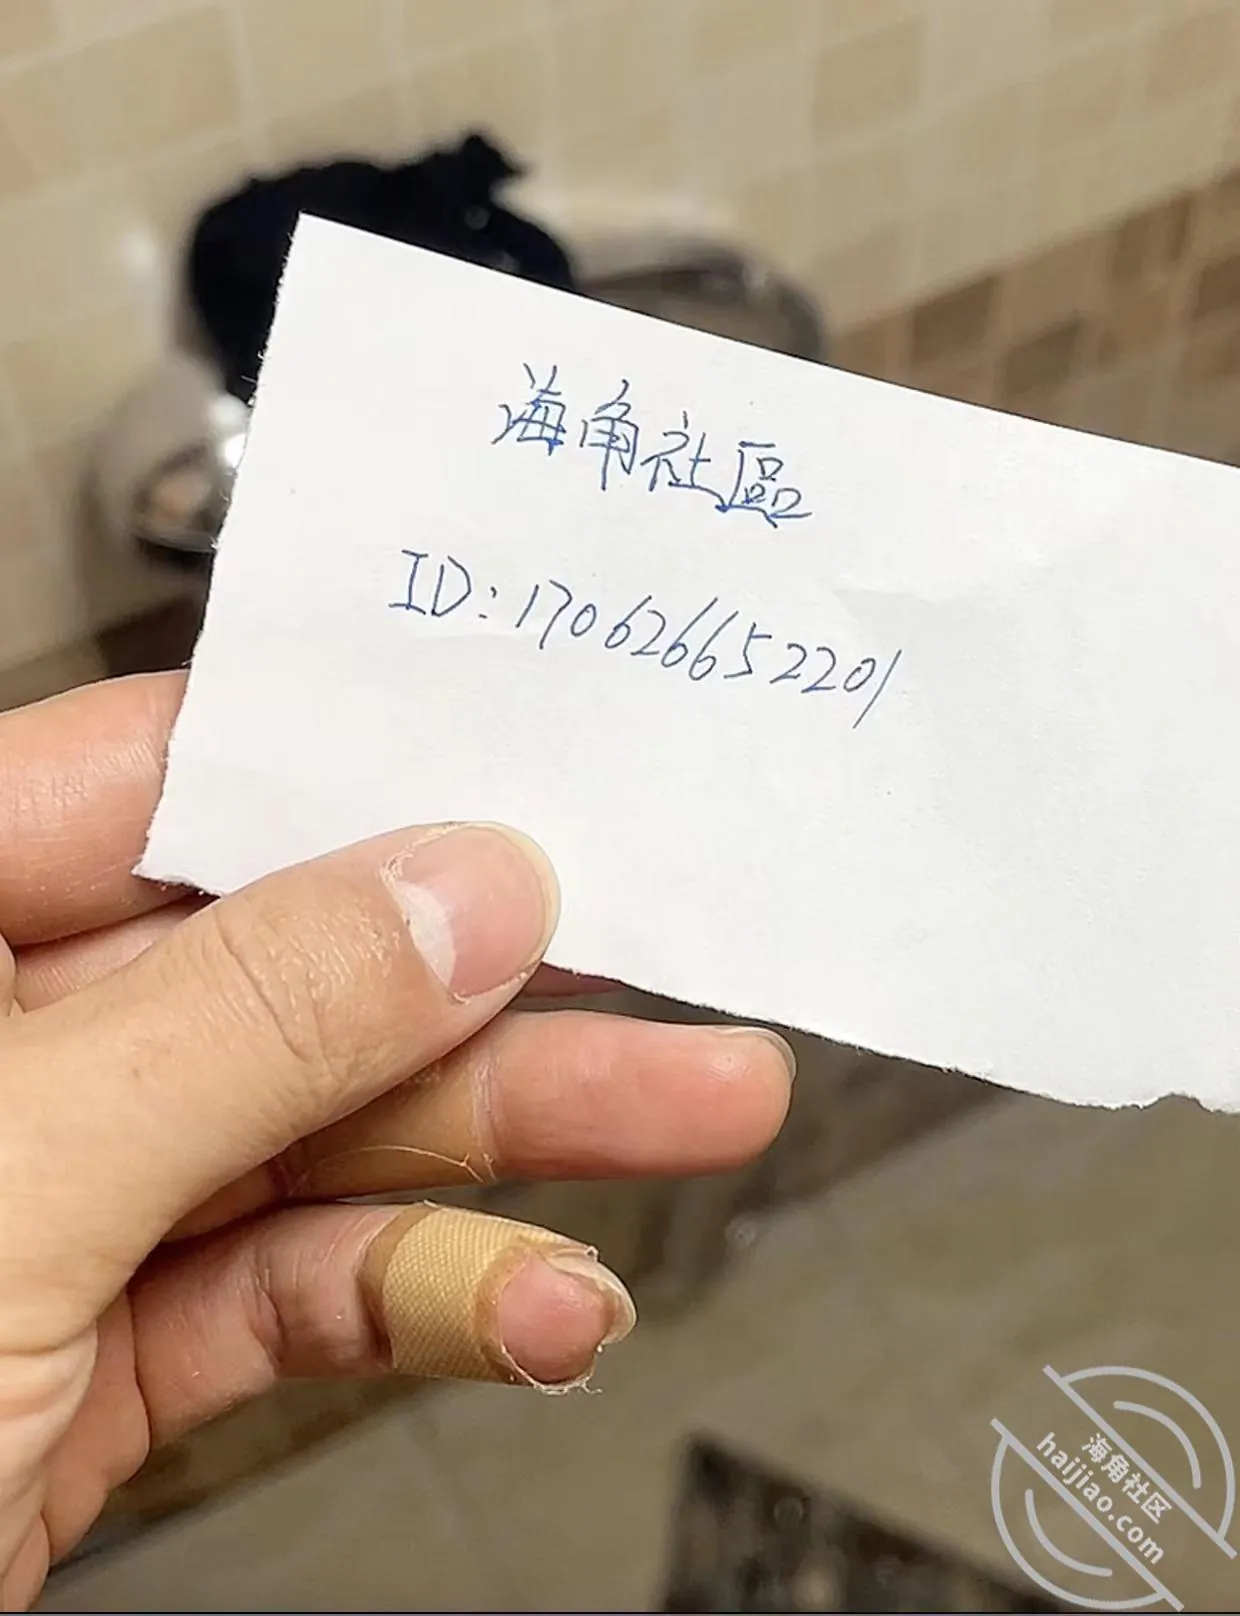 海角社區
ID:170626652201
海角社区
haijiao.com